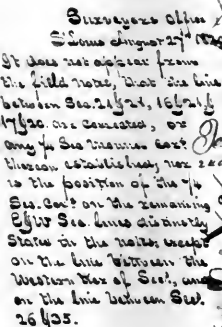 Surveyors Office
St Louis August 27th
It does not appear from
the field notes, that the line
between Sec. 21 & 28, 16 & 21 &
17 & 20. are connected, or
any 1/4 Sec.
thereon established, nor
is the position of the 1/4
Sec. Cors. on the remaining
E & W Sec. lines distinctly
stated in the notes, except
on the line between the
Western tier of Secs., and
on the line between Secs.
26 & 35.